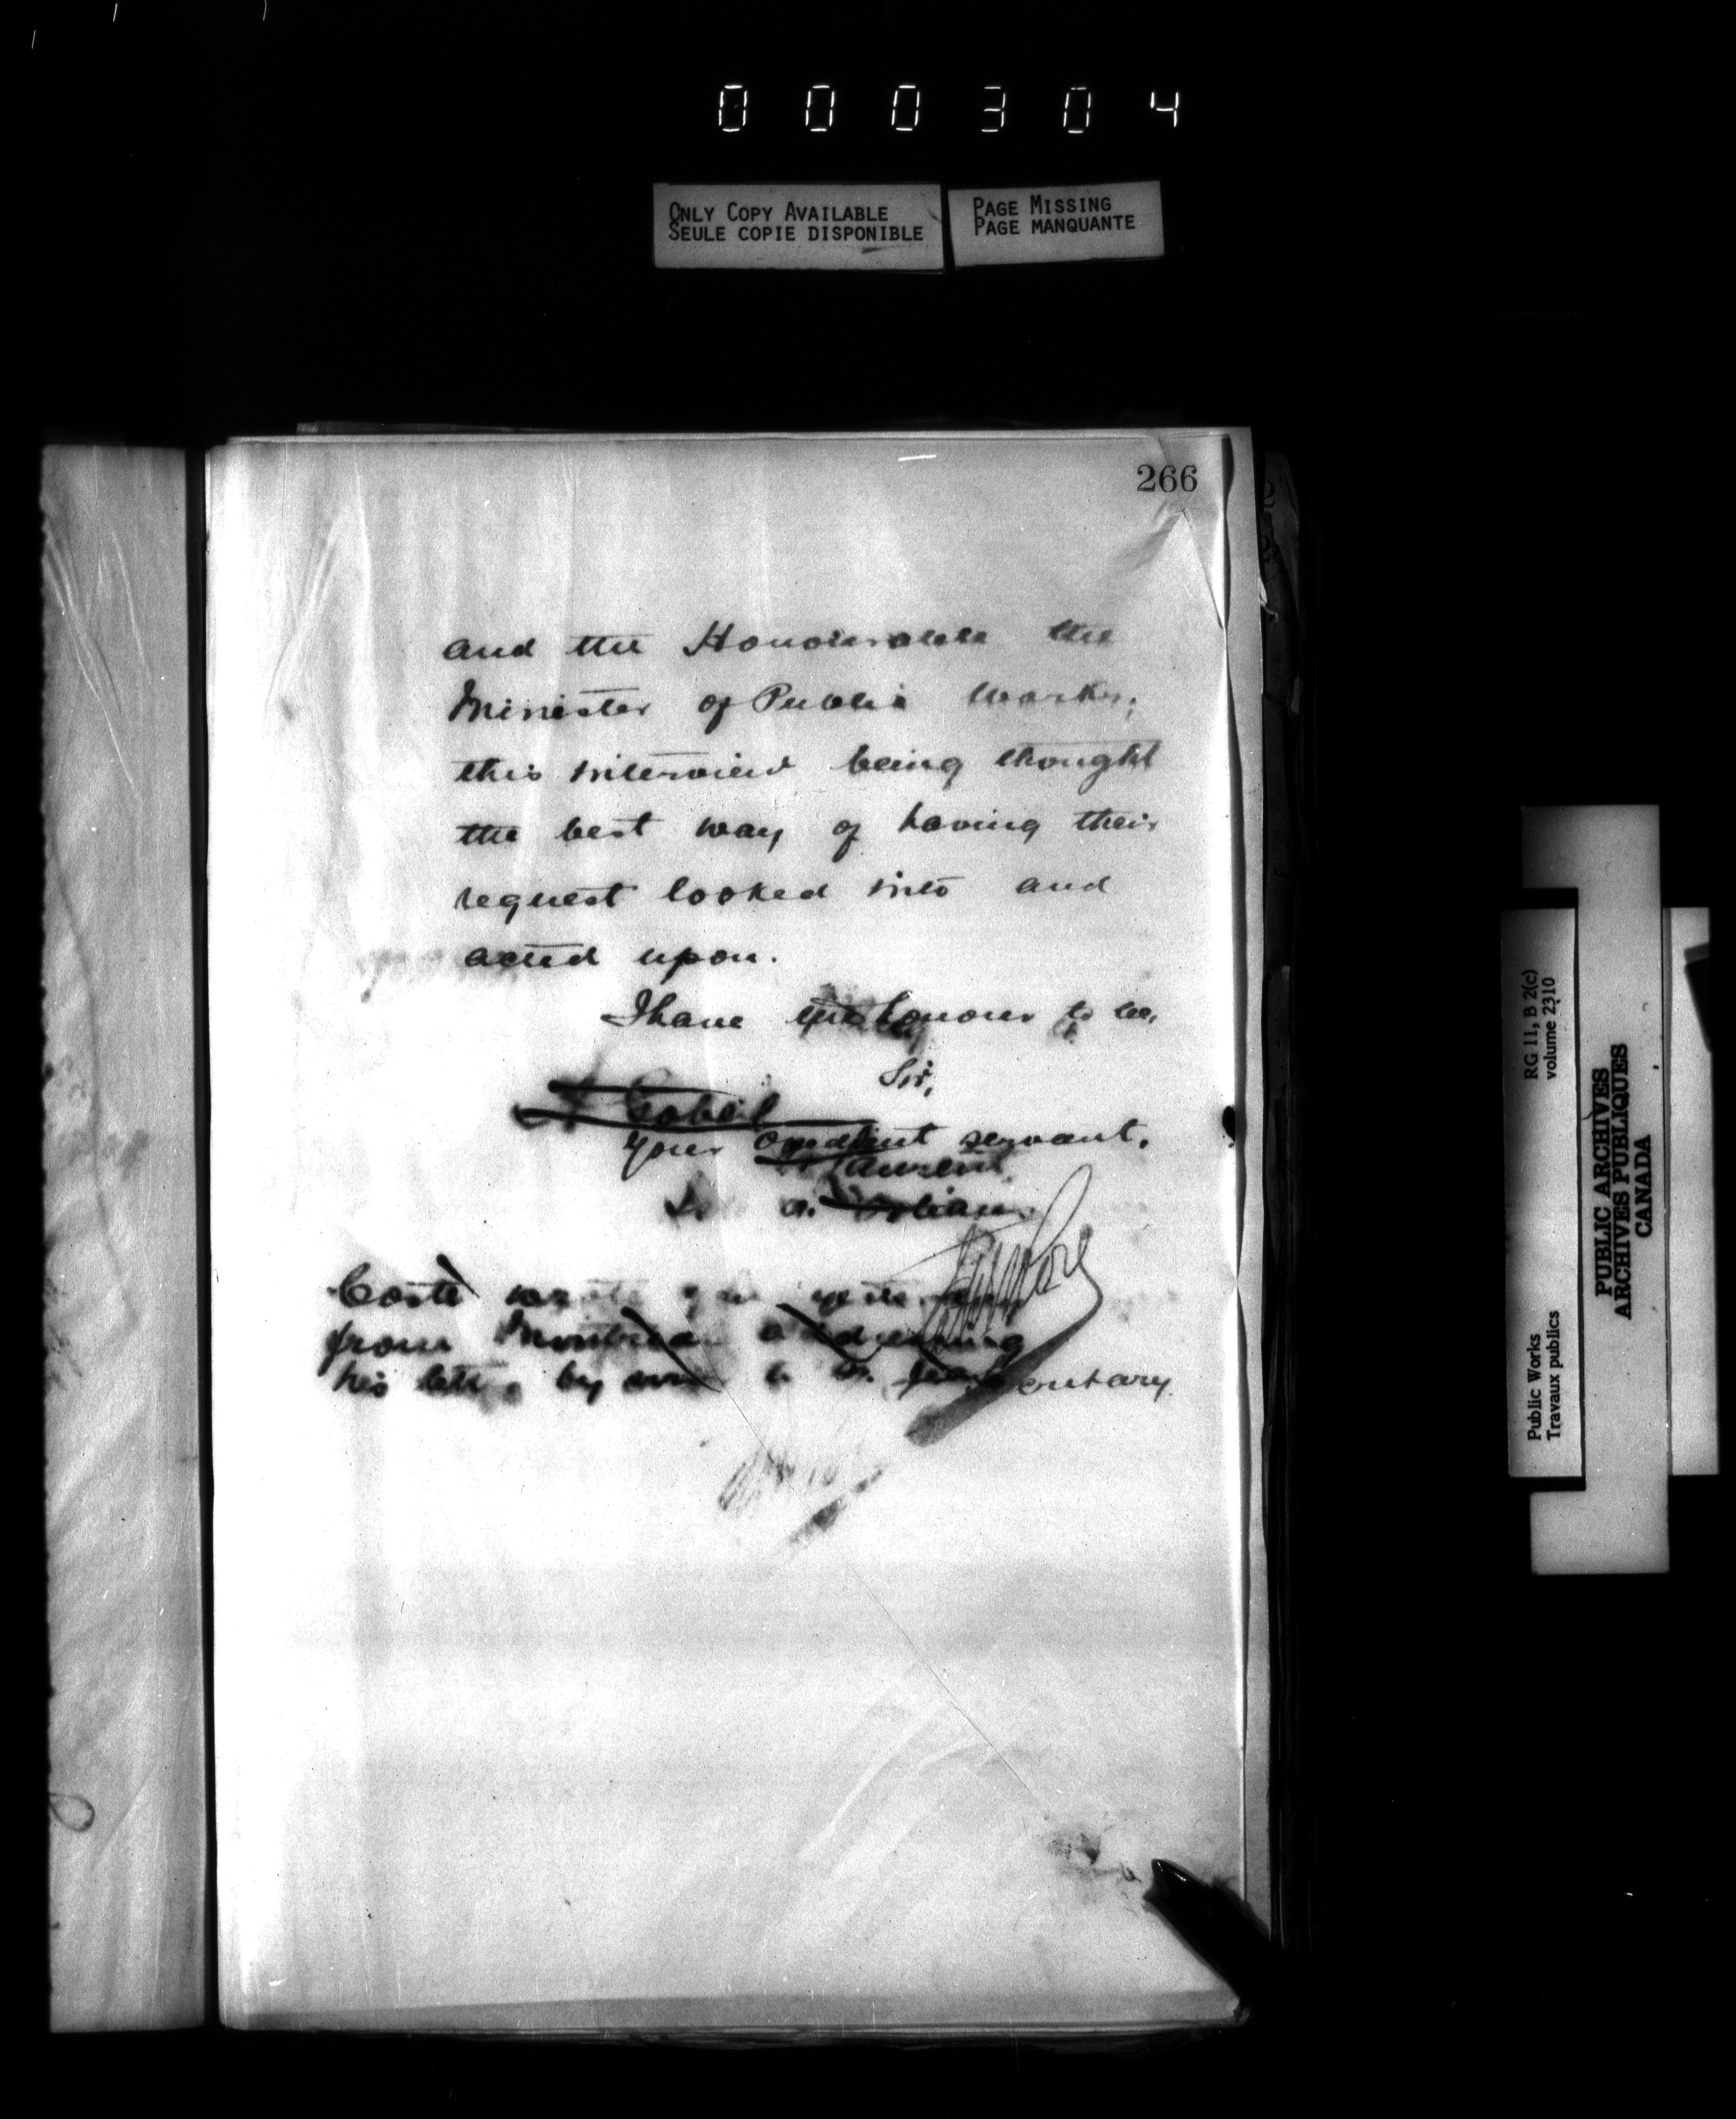 000304
ONLY COPY AVAILABLE
SEULE COPIE DISPONIBLE
PAGE MISSING
PAGE MANQUANTE
266
and the Honourable the
Minister of Public Works;
this interview being thought
the best way of having their
request looked into and
acted upon.
I have the honour to be,
Sir,
Gobeil
your obedient servant,
Laurent
Coste
from Montreal addressing
his by to
RG 11, B 2(c)
volume 2310
Public Works
Travaux publics
PUBLIC ARCHIVES
ARCHIVES PUBLIQUES
CANADA